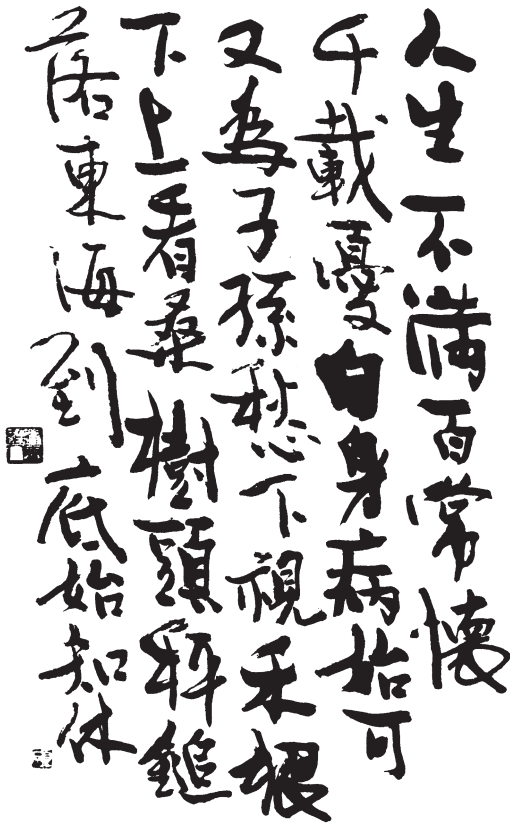 人生不滿百常懷
千載憂自身病始可
又為子孫愁下視禾根
下上看桑樹頭秤鎚
落東海到底始知休